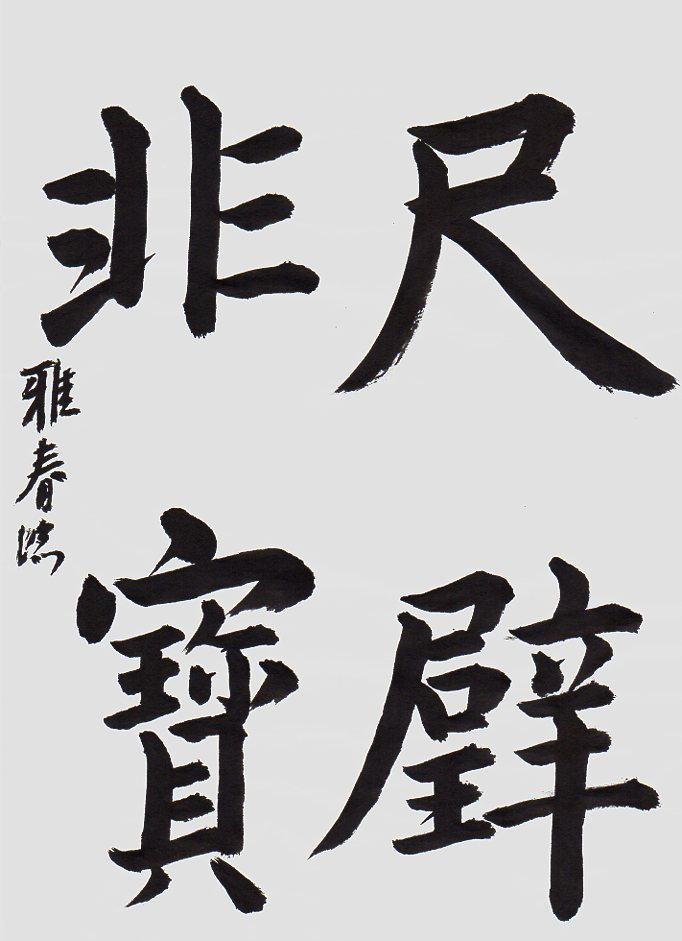 尺璧
非寳
雅春臨